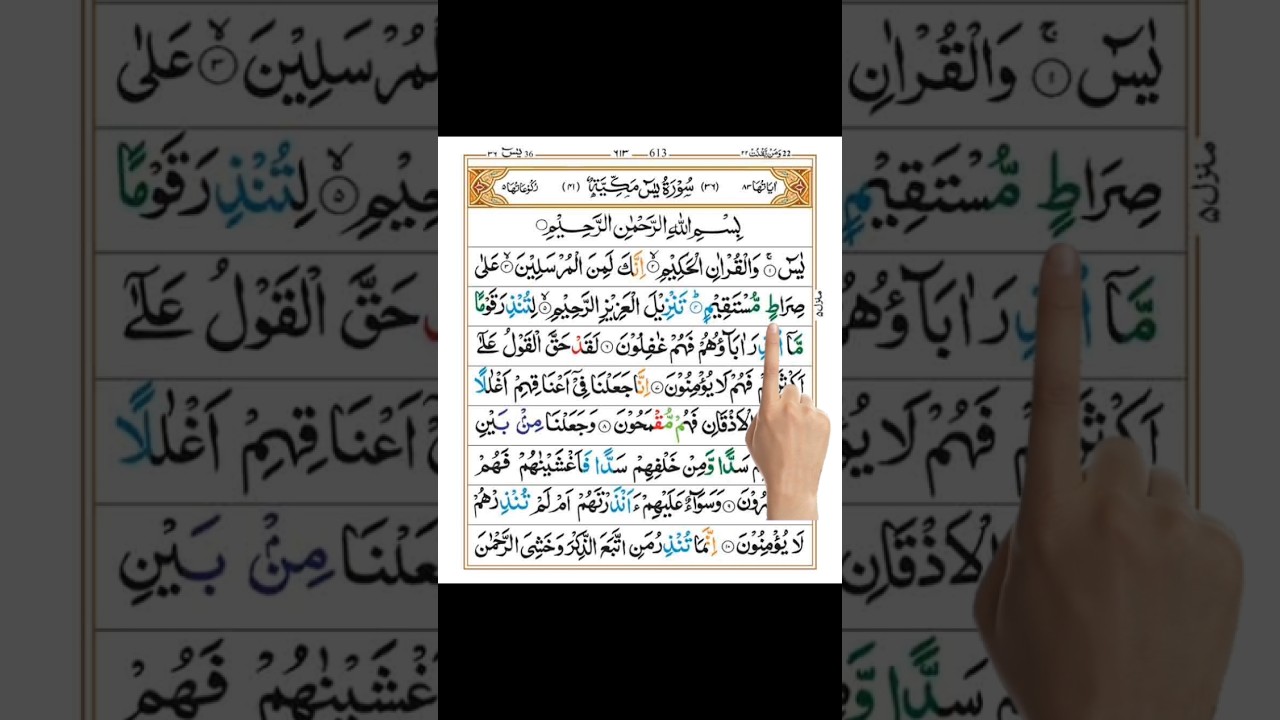 36 يٰسٓ ٣٦
613 ـــــ ٦١٣
22 وَمَنْ يَّقْنُتْ ٢٢
اٰيَاتُهَا ٨٣ (٣٦) سُوْرَةُ يٰسٓ مَكِّيَّةٌ (٤١) رُكُوْعَاتُهَا ٥
بِسْمِ اللّٰهِ الرَّحْمٰنِ الرَّحِيْمِ۝
يٰسٓ ۚ۝١ وَالْقُرْاٰنِ الْحَكِيْمِ ۙ۝٢ اِنَّكَ لَمِنَ الْمُرْسَلِيْنَ ۙ۝٣ عَلٰى
صِرَاطٍ مُّسْتَقِيْمٍ ؕ۝٤ تَنْزِيْلَ الْعَزِيْزِ الرَّحِيْمِ ۙ۝٥ لِتُنْذِرَ قَوْمًا
مَّاۤ اُنْذِرَ اٰبَآؤُهُمْ فَهُمْ غٰفِلُوْنَ ۝٦ لَقَدْ حَقَّ الْقَوْلُ عَلٰٓى
اَكْثَرِهِمْ فَهُمْ لَا يُؤْمِنُوْنَ ۝٧ اِنَّا جَعَلْنَا فِيْۤ اَعْنَاقِهِمْ اَغْلٰلًا
الْاَذْقَانِ فَهُمْ مُّقْمَحُوْنَ ۝٨ وَجَعَلْنَا مِنْۢ بَيْنِ
سَدًّا وَّمِنْ خَلْفِهِمْ سَدًّا فَاَغْشَيْنٰهُمْ فَهُمْ
۝٩ وَسَوَآءٌ عَلَيْهِمْ ءَاَنْذَرْتَهُمْ اَمْ لَمْ تُنْذِرْهُمْ
لَا يُؤْمِنُوْنَ ۝١٠ اِنَّمَا تُنْذِرُ مَنِ اتَّبَعَ الذِّكْرَ وَخَشِيَ الرَّحْمٰنَ
منزل ٥